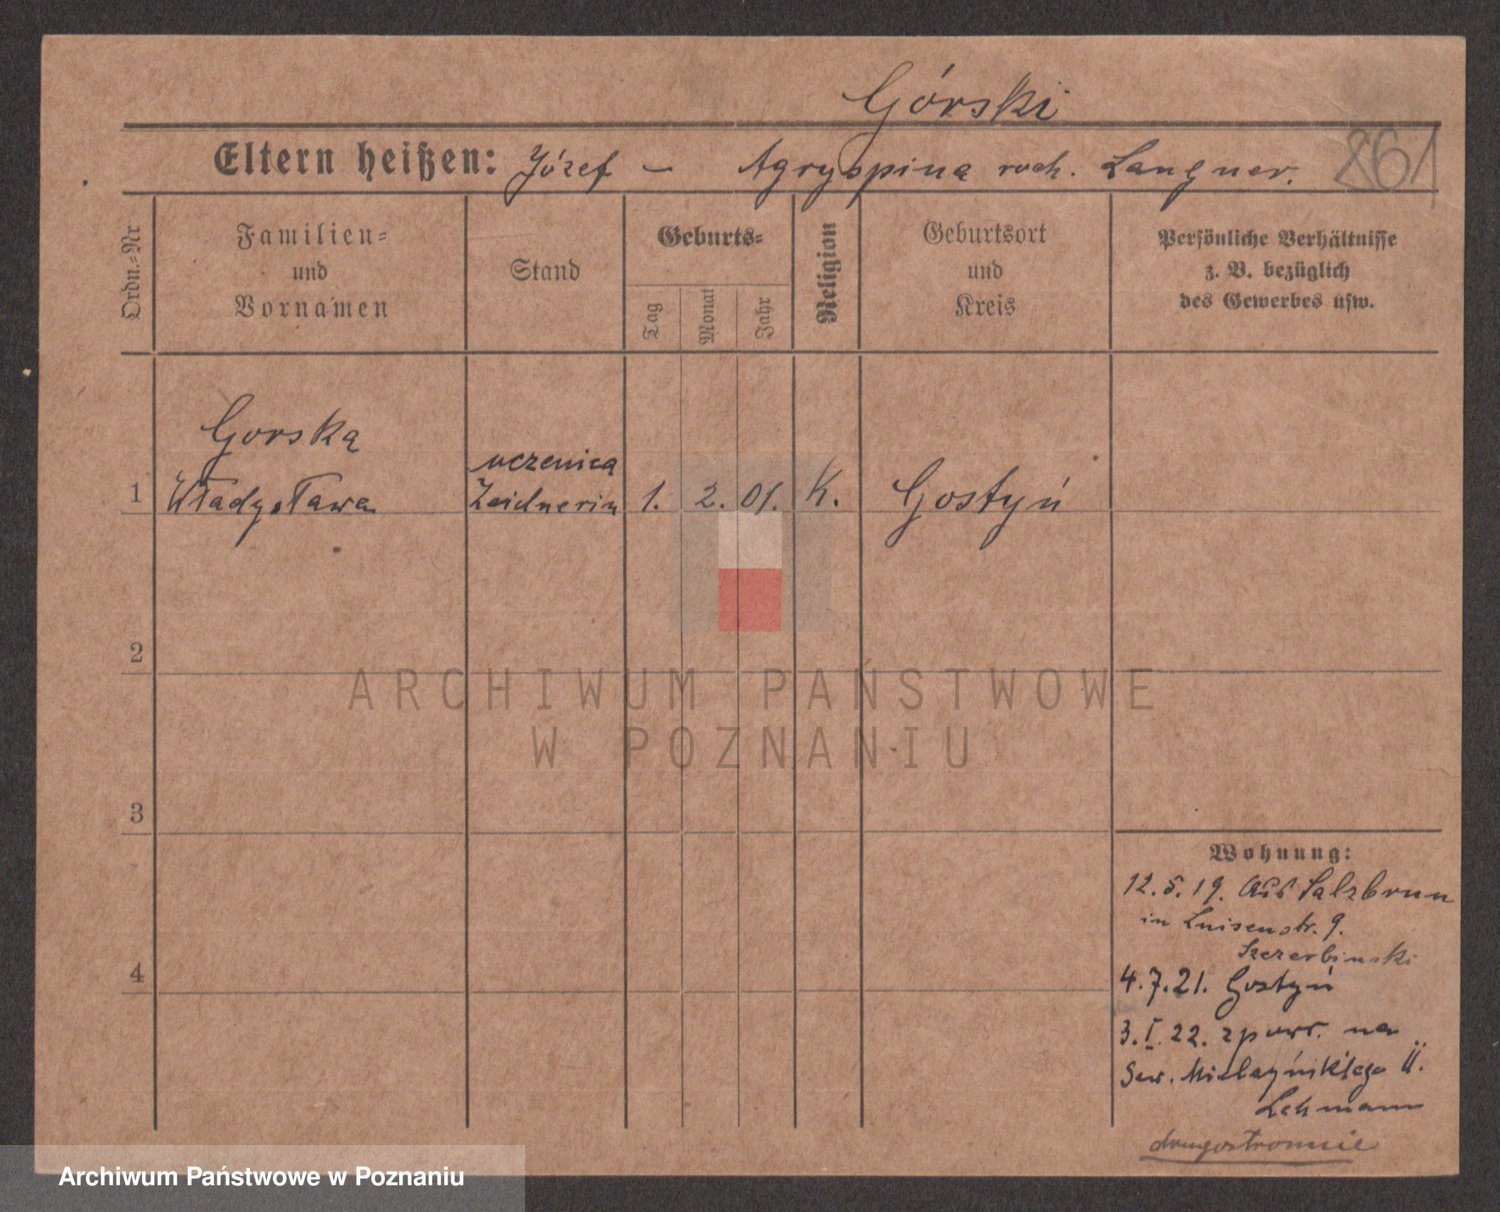 Górski
861
Eltern heißen: Józef — Agrypina roch. Langner.
Ordn.-Nr
Familien-
und
Vornamen
Stand
Geburts-
Tag
Monat
Jahr
Religion
Geburtsort
und
Kreis
Persönliche Verhältnisse
z. B. bezüglich
des Gewerbes usw.
Gorska
uczenica
1 Władysława Zeidnerin 1. 2. 01. K. Gostyń
2
3
4
Wohnung:
12.5.19. aus Salzbrun
in Luisenstr. 9.
Szczerbinski
4.7.21. Gostyń
3.I.22. z powr. na
Sew. Mielżyńskiego II.
Lehmann
drugostronnie
ARCHIWUM PAŃSTWOWE
W POZNANIU
Archiwum Państwowe w Poznaniu